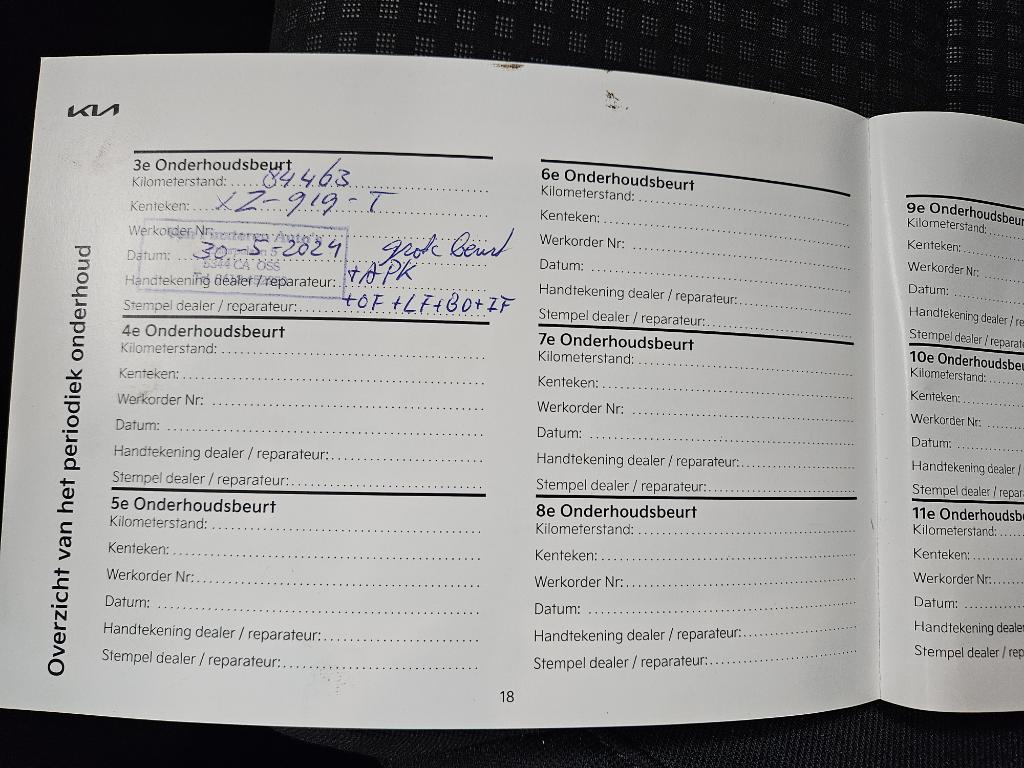 KIA
Overzicht van het periodiek onderhoud
3e Onderhoudsbeurt
Kilometerstand: 84463
Kenteken: XZ-919-T
Werkorder Nr:
Datum: 30-5-2024 grote beurt
5344 CA OSS
Handtekening dealer / reparateur: +APK
Stempel dealer / reparateur: +OF +LF+BO+IF
4e Onderhoudsbeurt
Kilometerstand:
Kenteken:
Werkorder Nr:
Datum:
Handtekening dealer / reparateur:
Stempel dealer / reparateur:
5e Onderhoudsbeurt
Kilometerstand:
Kenteken:
Werkorder Nr:
Datum:
Handtekening dealer / reparateur:
Stempel dealer / reparateur:
6e Onderhoudsbeurt
Kilometerstand:
Kenteken:
Werkorder Nr:
Datum:
Handtekening dealer / reparateur:
Stempel dealer / reparateur:
7e Onderhoudsbeurt
Kilometerstand:
Kenteken:
Werkorder Nr:
Datum:
Handtekening dealer / reparateur:
Stempel dealer / reparateur:
8e Onderhoudsbeurt
Kilometerstand:
Kenteken:
Werkorder Nr:
Datum:
Handtekening dealer / reparateur:
Stempel dealer / reparateur:
18
9e Onderhoudsbeur
Kilometerstand:
Kenteken:
Werkorder Nr:
Datum:
Handtekening dealer / re
Stempel dealer / reparate
10e Onderhoudsbeu
Kilometerstand:
Kenteken:
Werkorder Nr:
Datum:
Handtekening dealer /
Stempel dealer / repar
11e Onderhoudsb
Kilometerstand:
Kenteken:
Werkorder Nr:
Datum:
Handtekening deale
Stempel dealer / rep